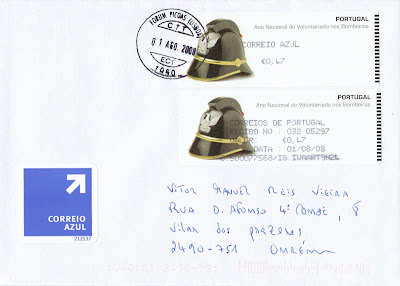 FORUM PICOAS (LISBOA)
CTT
01 AGO. 2008
EC1
1050
PORTUGAL
Ano Nacional do Voluntariado nos Bombeiros
CORREIO AZUL
€0,47
PORTUGAL
Ano Nacional do Voluntariado nos Bombeiros
CORREIOS DE PORTUGAL
RECIBO NO : 032 05297
€0,47
DATA : 01/08/08
CORREIO
AZUL
212537
Vitor Manuel Reis Vieira
Rua D. Afonso 4º Conde, 8
Vilar dos Prazeres
2490-751 Ourém